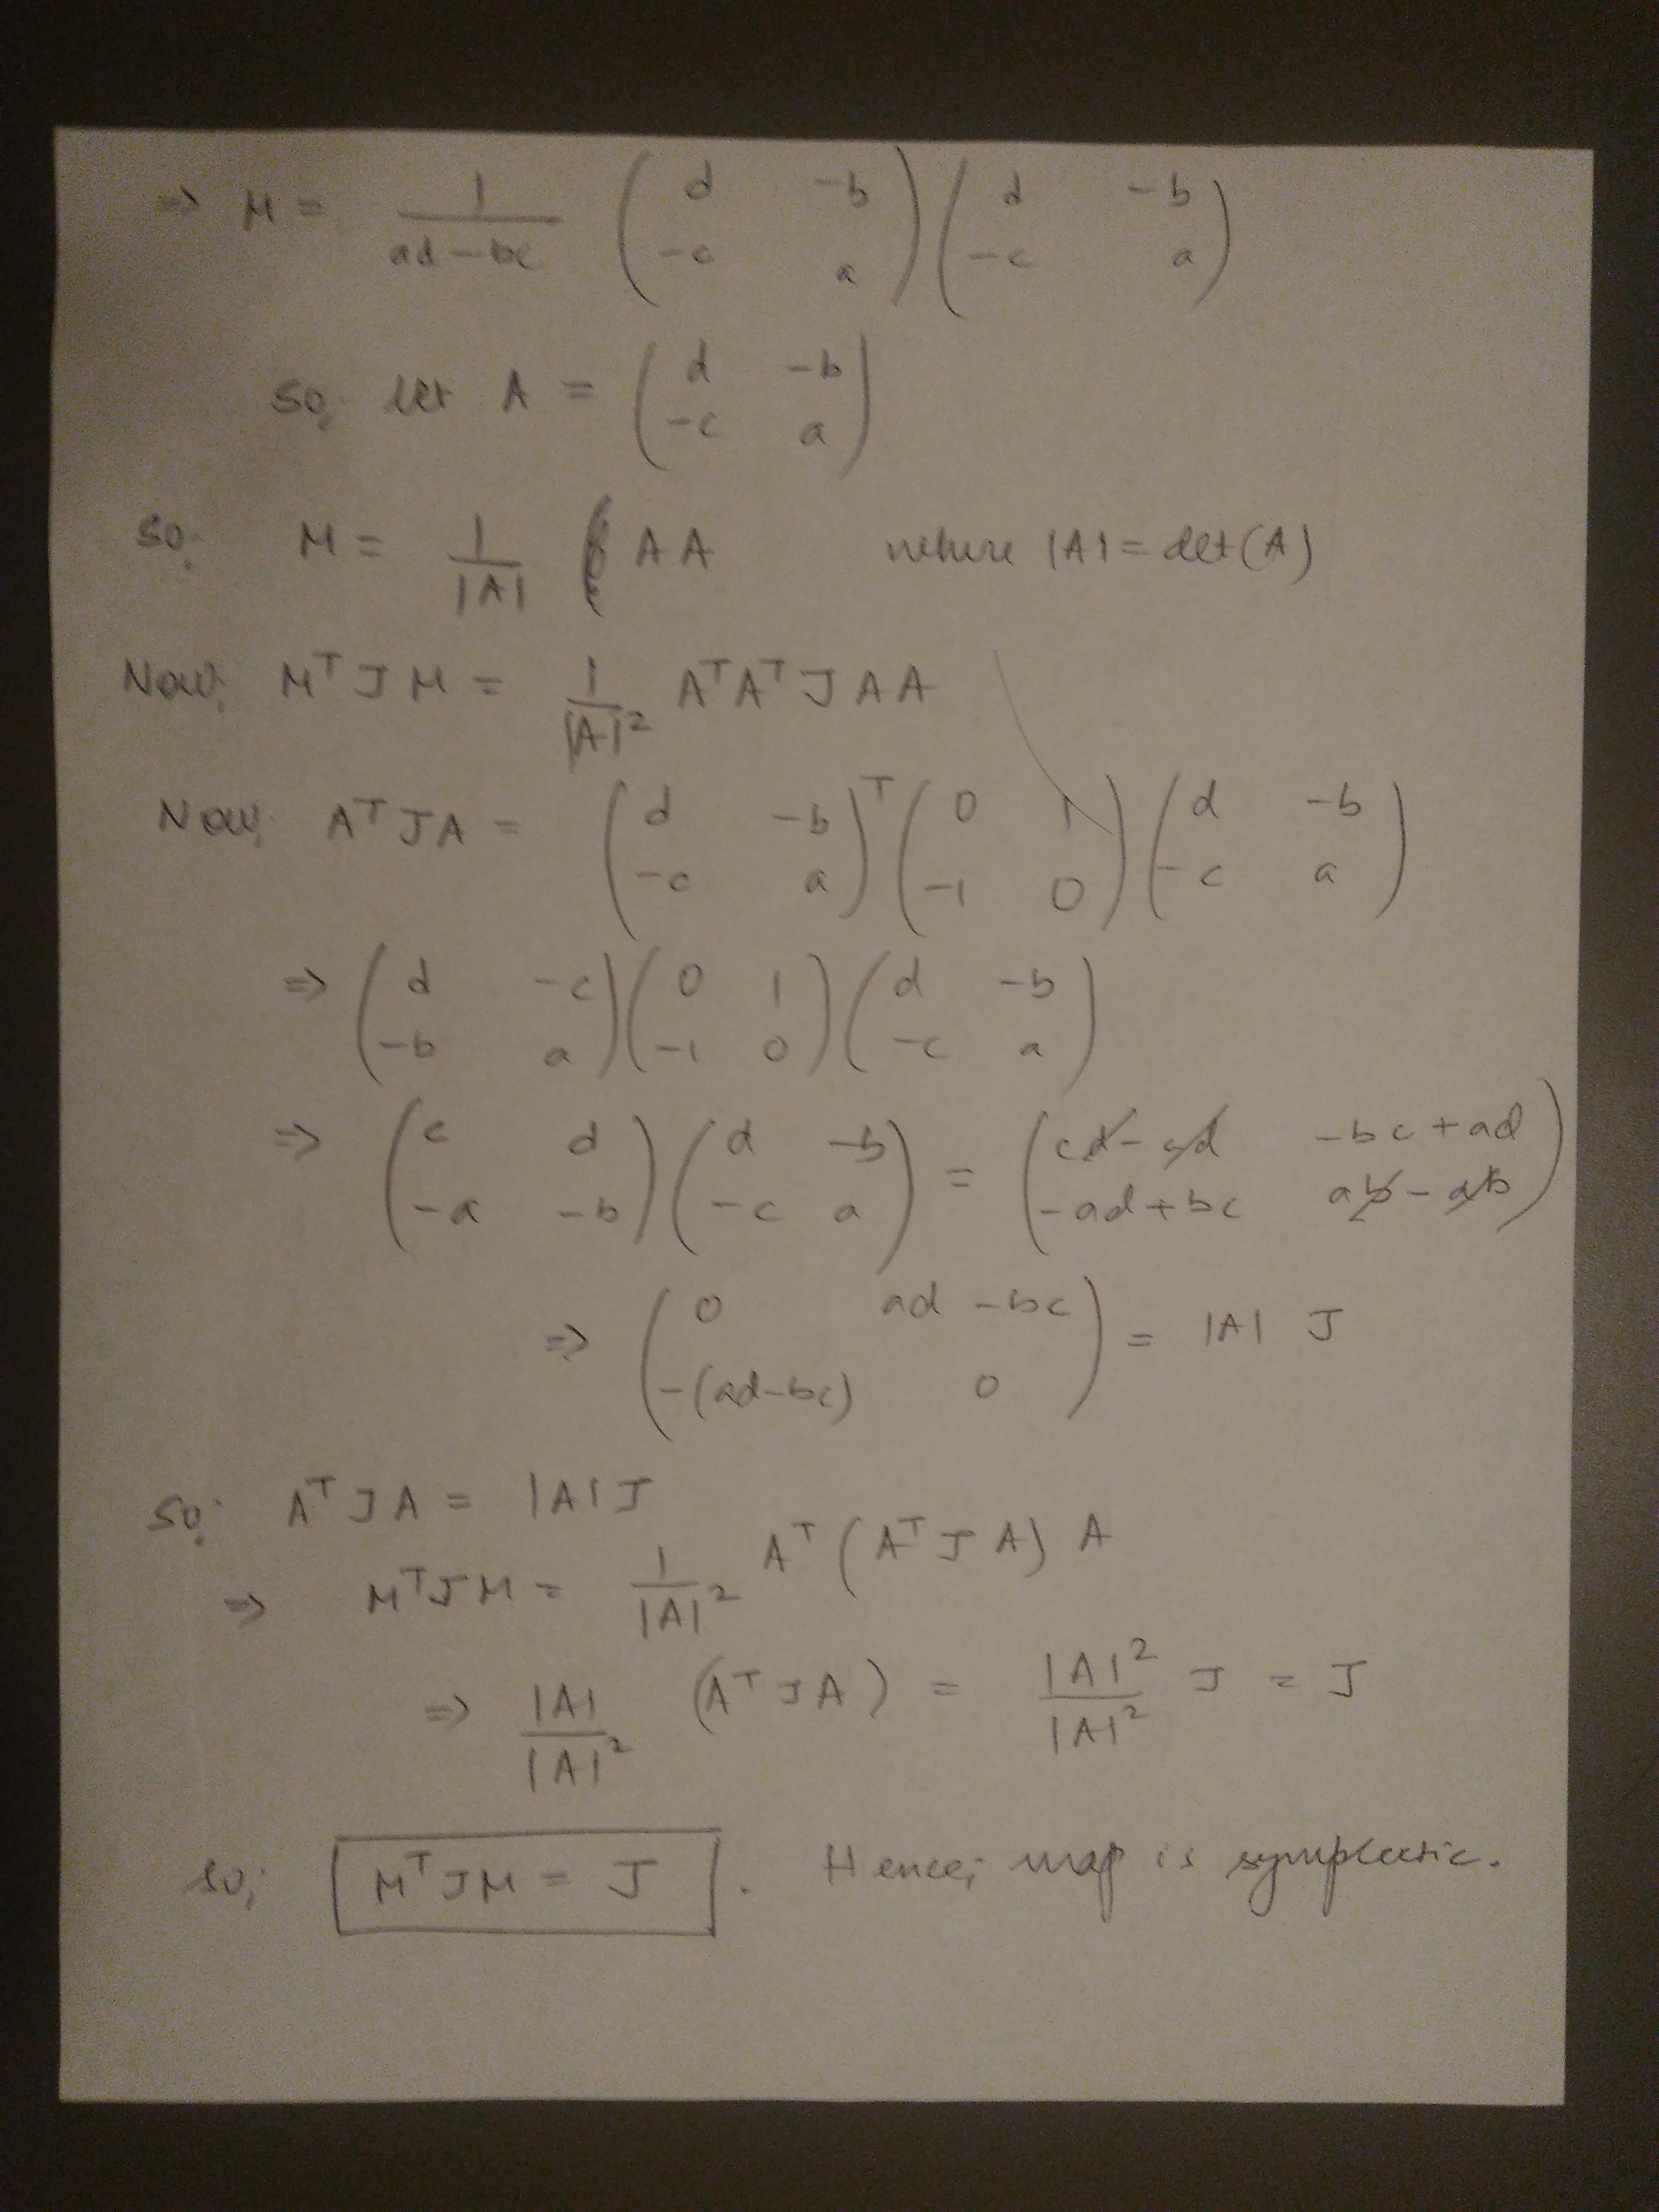 ⇒ M = 1/(ad-bc) (d -b; -c a) (d -b; -c a)
So, let A = (d -b; -c a)
So, M = 1/|A| AA where |A| = det(A)
Now, MᵀJM = 1/|A|² AᵀAᵀJAA
Now, AᵀJA = (d -b; -c a)ᵀ (0 1; -1 0) (d -b; -c a)
⇒ (d -c; -b a) (0 1; -1 0) (d -b; -c a)
⇒ (c d; -a -b) (d -b; -c a) = (cd - cd -bc + ad; -ad + bc ab - ab)
⇒ (0 ad - bc; -(ad-bc) 0) = |A| J
So, AᵀJA = |A| J
⇒ MᵀJM = 1/|A|² Aᵀ(AᵀJA)A
⇒ |A|/|A|² (AᵀJA) = |A|²/|A|² J = J
So, MᵀJM = J . Hence, map is symplectic.